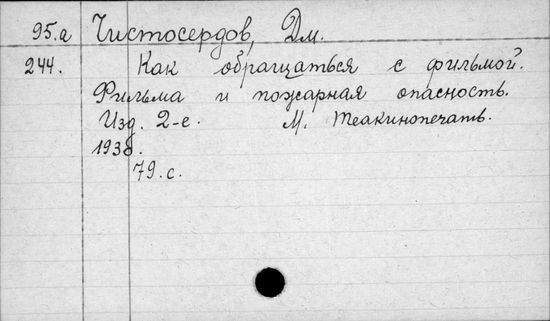 95.а Чистосердов, Дм.
244. Как обращаться с фильмой.
Фильма и пожарная опасность.
Изд. 2-е. М. Теакинопечать.
1930.
79.с.